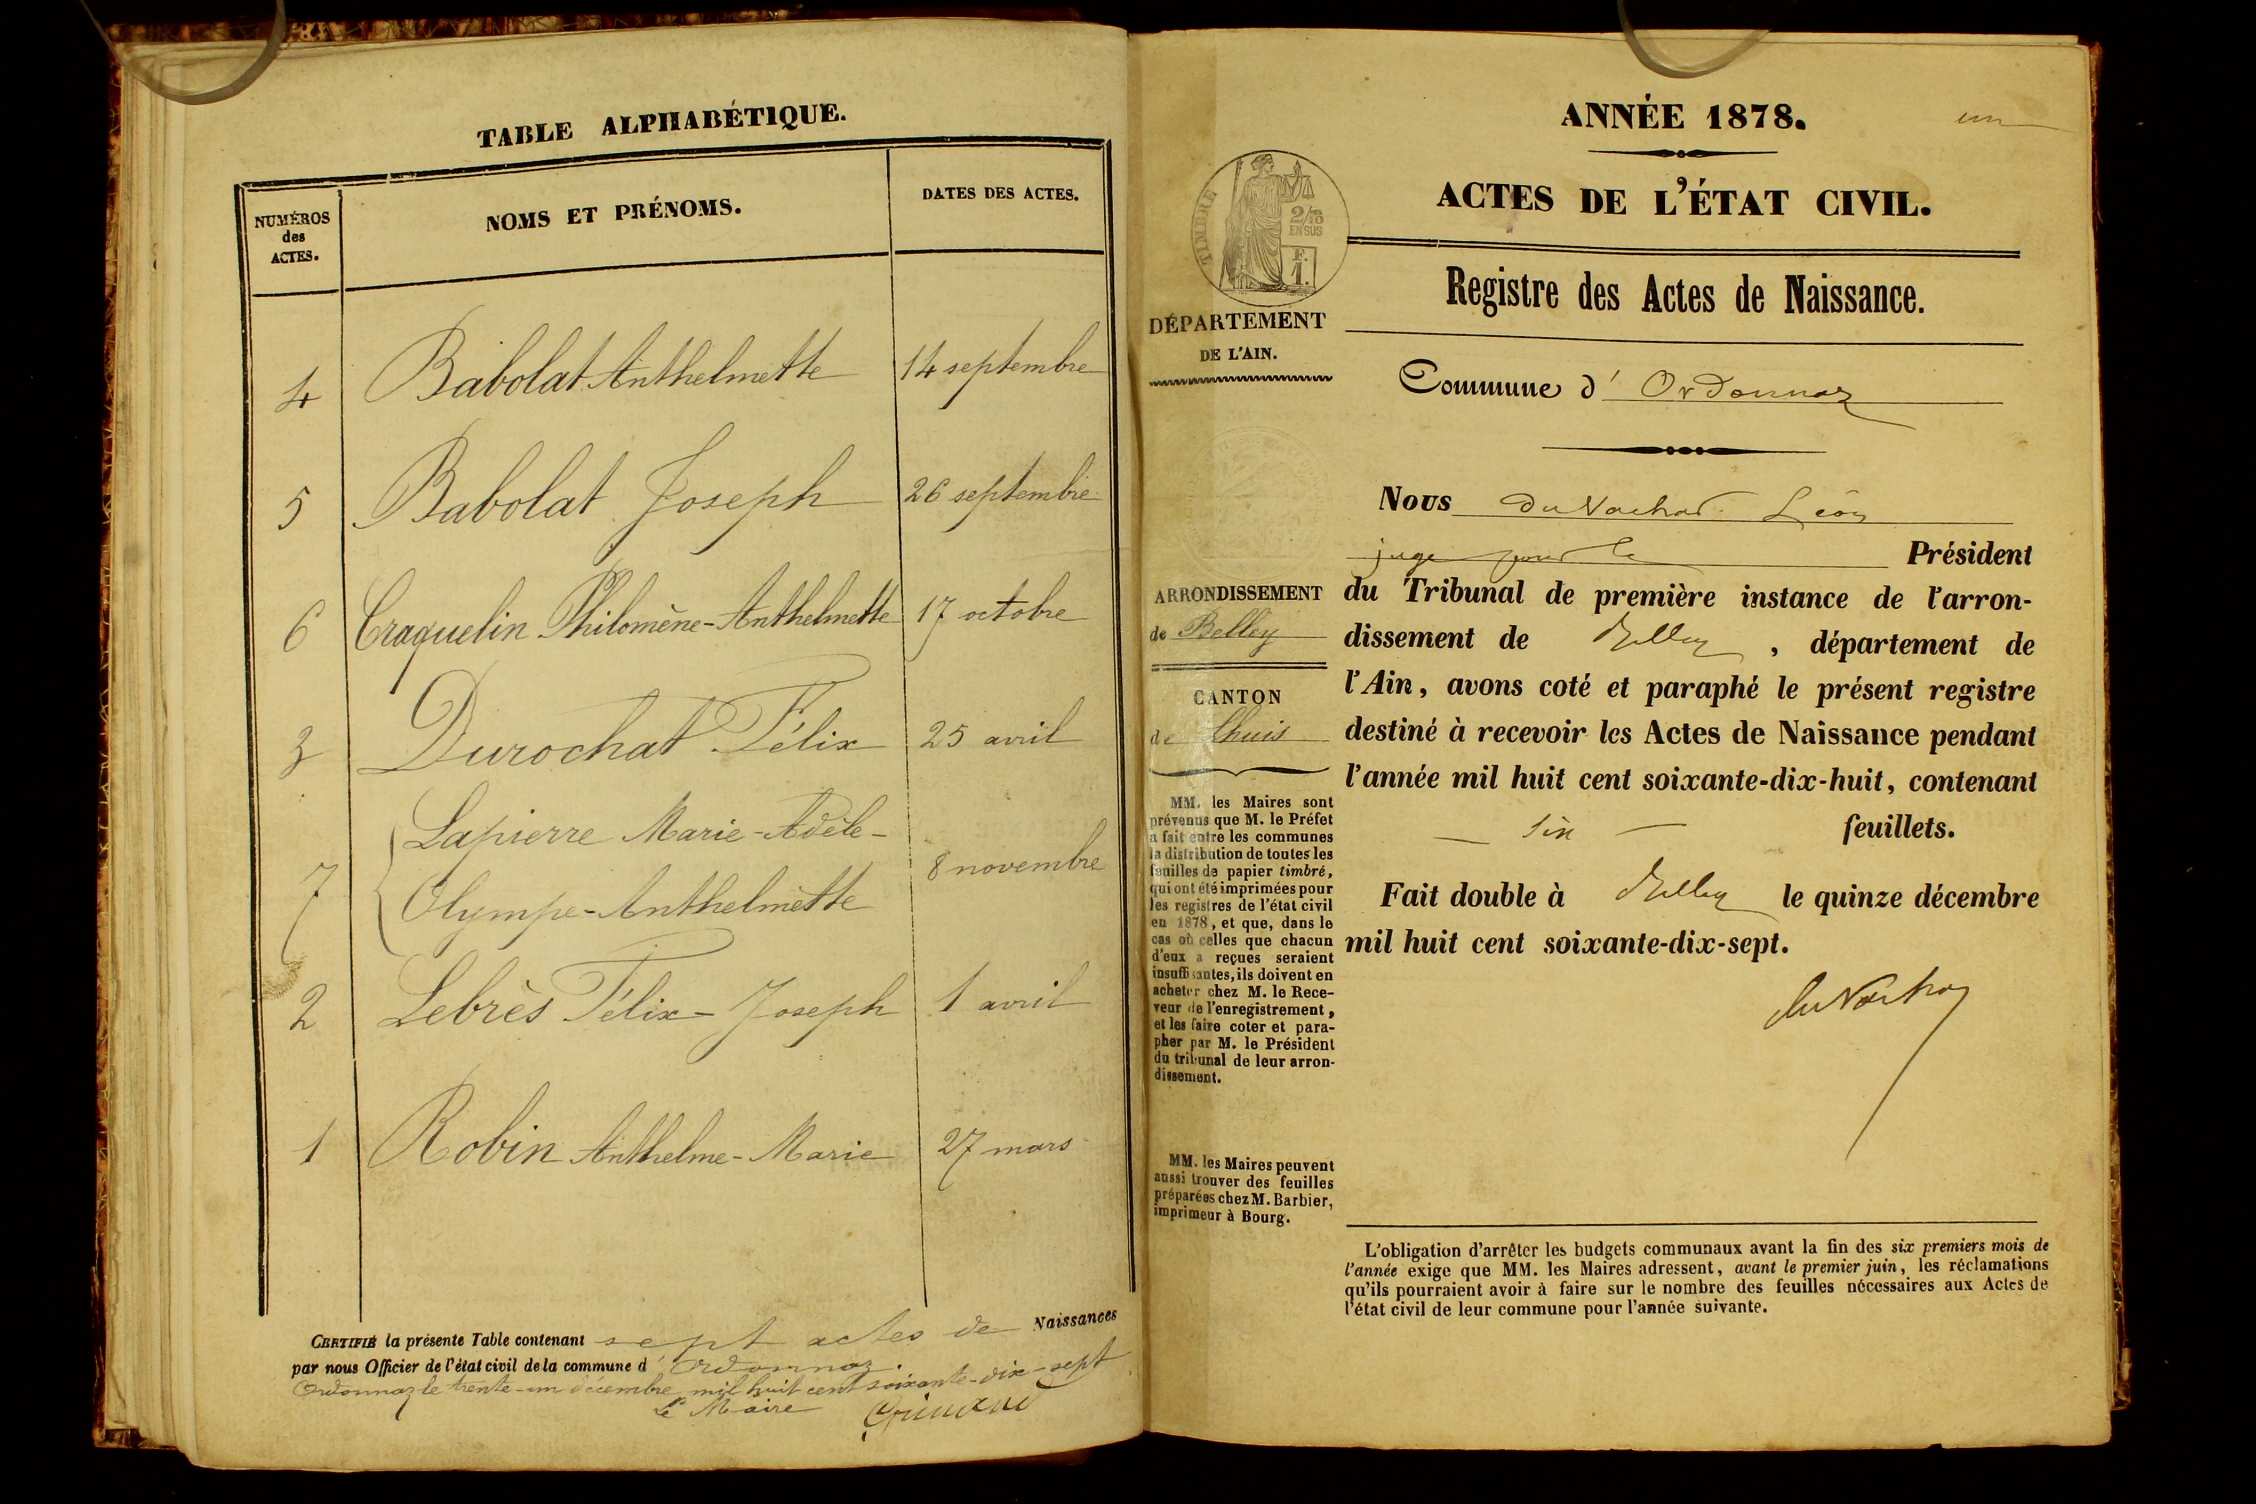 TABLE ALPHABÉTIQUE.
NUMÉROS des ACTES.
NOMS ET PRÉNOMS.
DATES DES ACTES.
4 Babolat Anthelmette 14 septembre
5 Babolat Joseph 26 septembre
6 Craquelin Philomène-Anthelmette 17 octobre
3 Durochat Félix 25 avril
Lapierre Marie-Adèle-
7 8 novembre
Olympe-Anthelmette
2 Lebrès Félix-Joseph 1 avril
1 Robin Anthelme-Marie 27 mars
CERTIFIÉ la présente Table contenant sept actes de Naissances
par nous Officier de l'état civil de la commune d' Ordonnaz.
Ordonnaz le trente-un décembre mil huit cent soixante-dix-sept
Le Maire
un
ANNÉE 1878.
ACTES DE L'ÉTAT CIVIL.
TIMBRE
2/10
EN SUS
F.
1.
DÉPARTEMENT
DE L'AIN.
ARRONDISSEMENT
de Belley
CANTON
de Lhuis
MM. les Maires sont
prévenus que M. le Préfet
a fait entre les communes
la distribution de toutes les
feuilles de papier timbré,
qui ont été imprimées pour
les registres de l'état civil
en 1878, et que, dans le
cas où celles que chacun
d'eux a reçues seraient
insuffisantes, ils doivent en
acheter chez M. le Rece-
veur de l'enregistrement,
et les faire coter et para-
pher par M. le Président
du tribunal de leur arron-
dissement.
MM. les Maires peuvent
aussi trouver des feuilles
préparées chez M. Barbier,
imprimeur à Bourg.
Registre des Actes de Naissance.
Commune d' Ordonnaz
Nous Du Nachat Léon
juge pour le Président
du Tribunal de première instance de l'arron-
dissement de Belley, département de
l'Ain, avons coté et paraphé le présent registre
destiné à recevoir les Actes de Naissance pendant
l'année mil huit cent soixante-dix-huit, contenant
— six — feuillets.
Fait double à Belley le quinze décembre
mil huit cent soixante-dix-sept.
L'obligation d'arrêter les budgets communaux avant la fin des six premiers mois de
l'année exige que MM. les Maires adressent, avant le premier juin, les réclamations
qu'ils pourraient avoir à faire sur le nombre des feuilles nécessaires aux Actes de
l'état civil de leur commune pour l'année suivante.